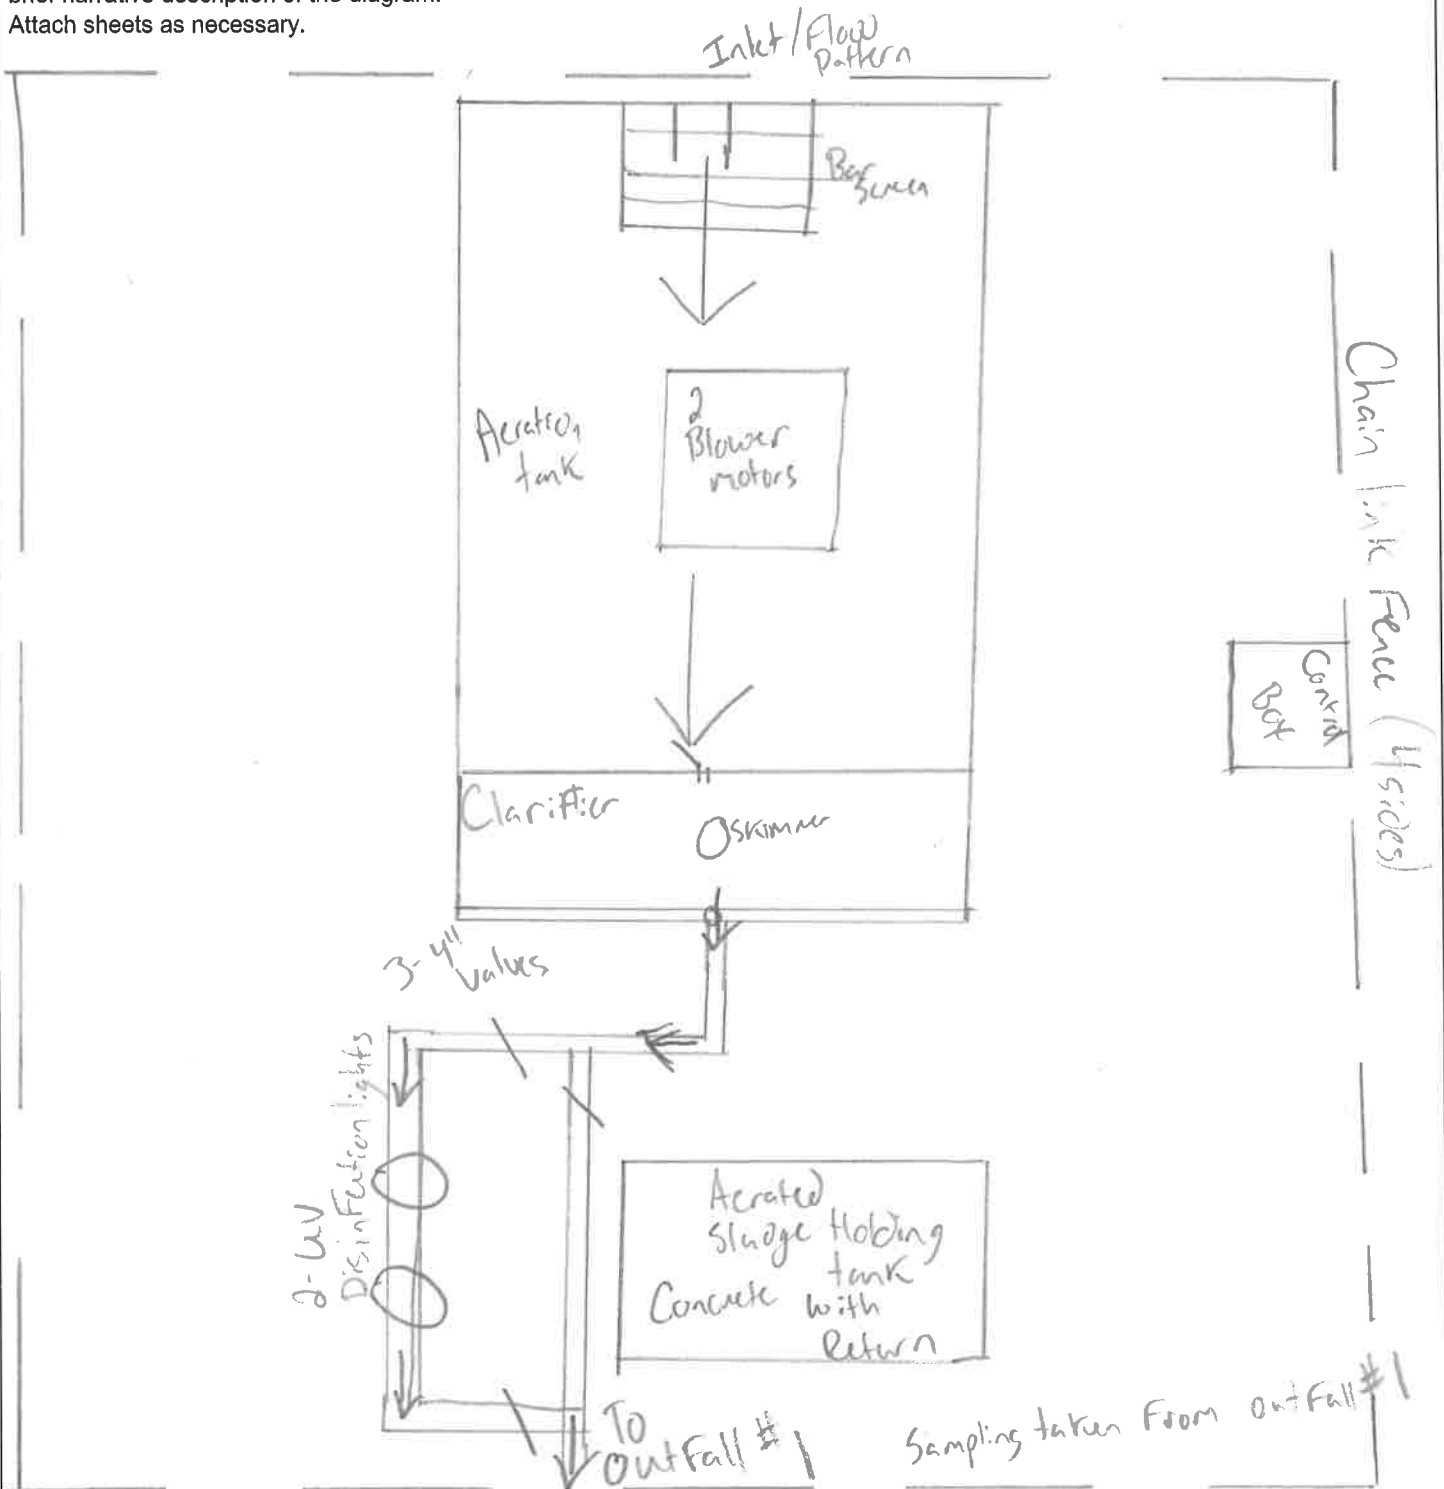 Attach sheets as necessary.
Inlet/Flow
Pattern
Bar
Screen
Aeration
tank
2
Blower
motors
Chain link Fence (4 sides)
Control
Box
Clarifier
Skimmer
3-4"
Valves
2-UV
Disinfection lights
Aerated
Sludge Holding
tank
Concrete with
Return
To
OutFall #1
Sampling taken From OutFall #1